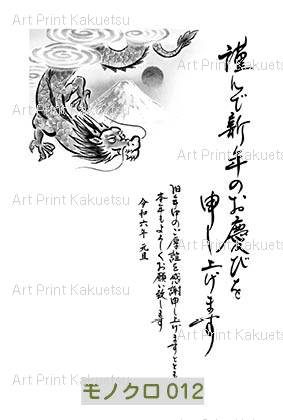 謹んで新年のお慶びを
申し上げます
旧年中のご厚誼を感謝申し上げますとともに
本年もよろしくお願い致します
令和六年 元旦
Art Print Kakuetsu
Art Print Kakuetsu
Art Print Kakuetsu
Art Print Kakuetsu
Art Print Kakuetsu
Art Print Kakuetsu
Art Print Kakuetsu
Art Print Kakuetsu
Art Print Kakuetsu
Art Print Kakuetsu
モノクロ 012